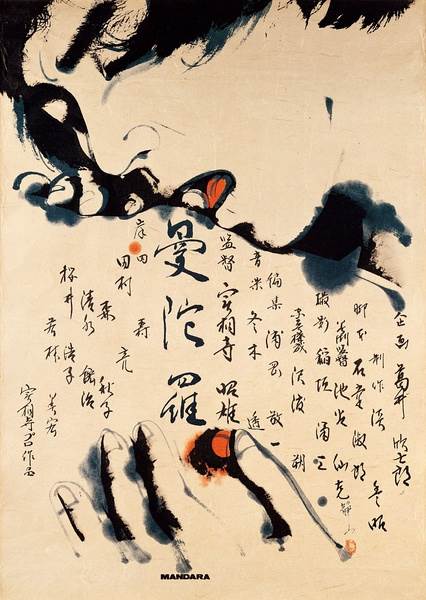 企画 葛井欣士郎
制作 淡豊昭
脚本 石堂淑朗
池谷仙克
撮影 稲垣涌三
編集 浦岡敬一
音楽 冬木透
監督 実相寺昭雄
曼陀羅
岸田森
田村亮
森秋子
清水紘治
桜井浩子
若林美宏
実相寺プロ作品
MANDARA